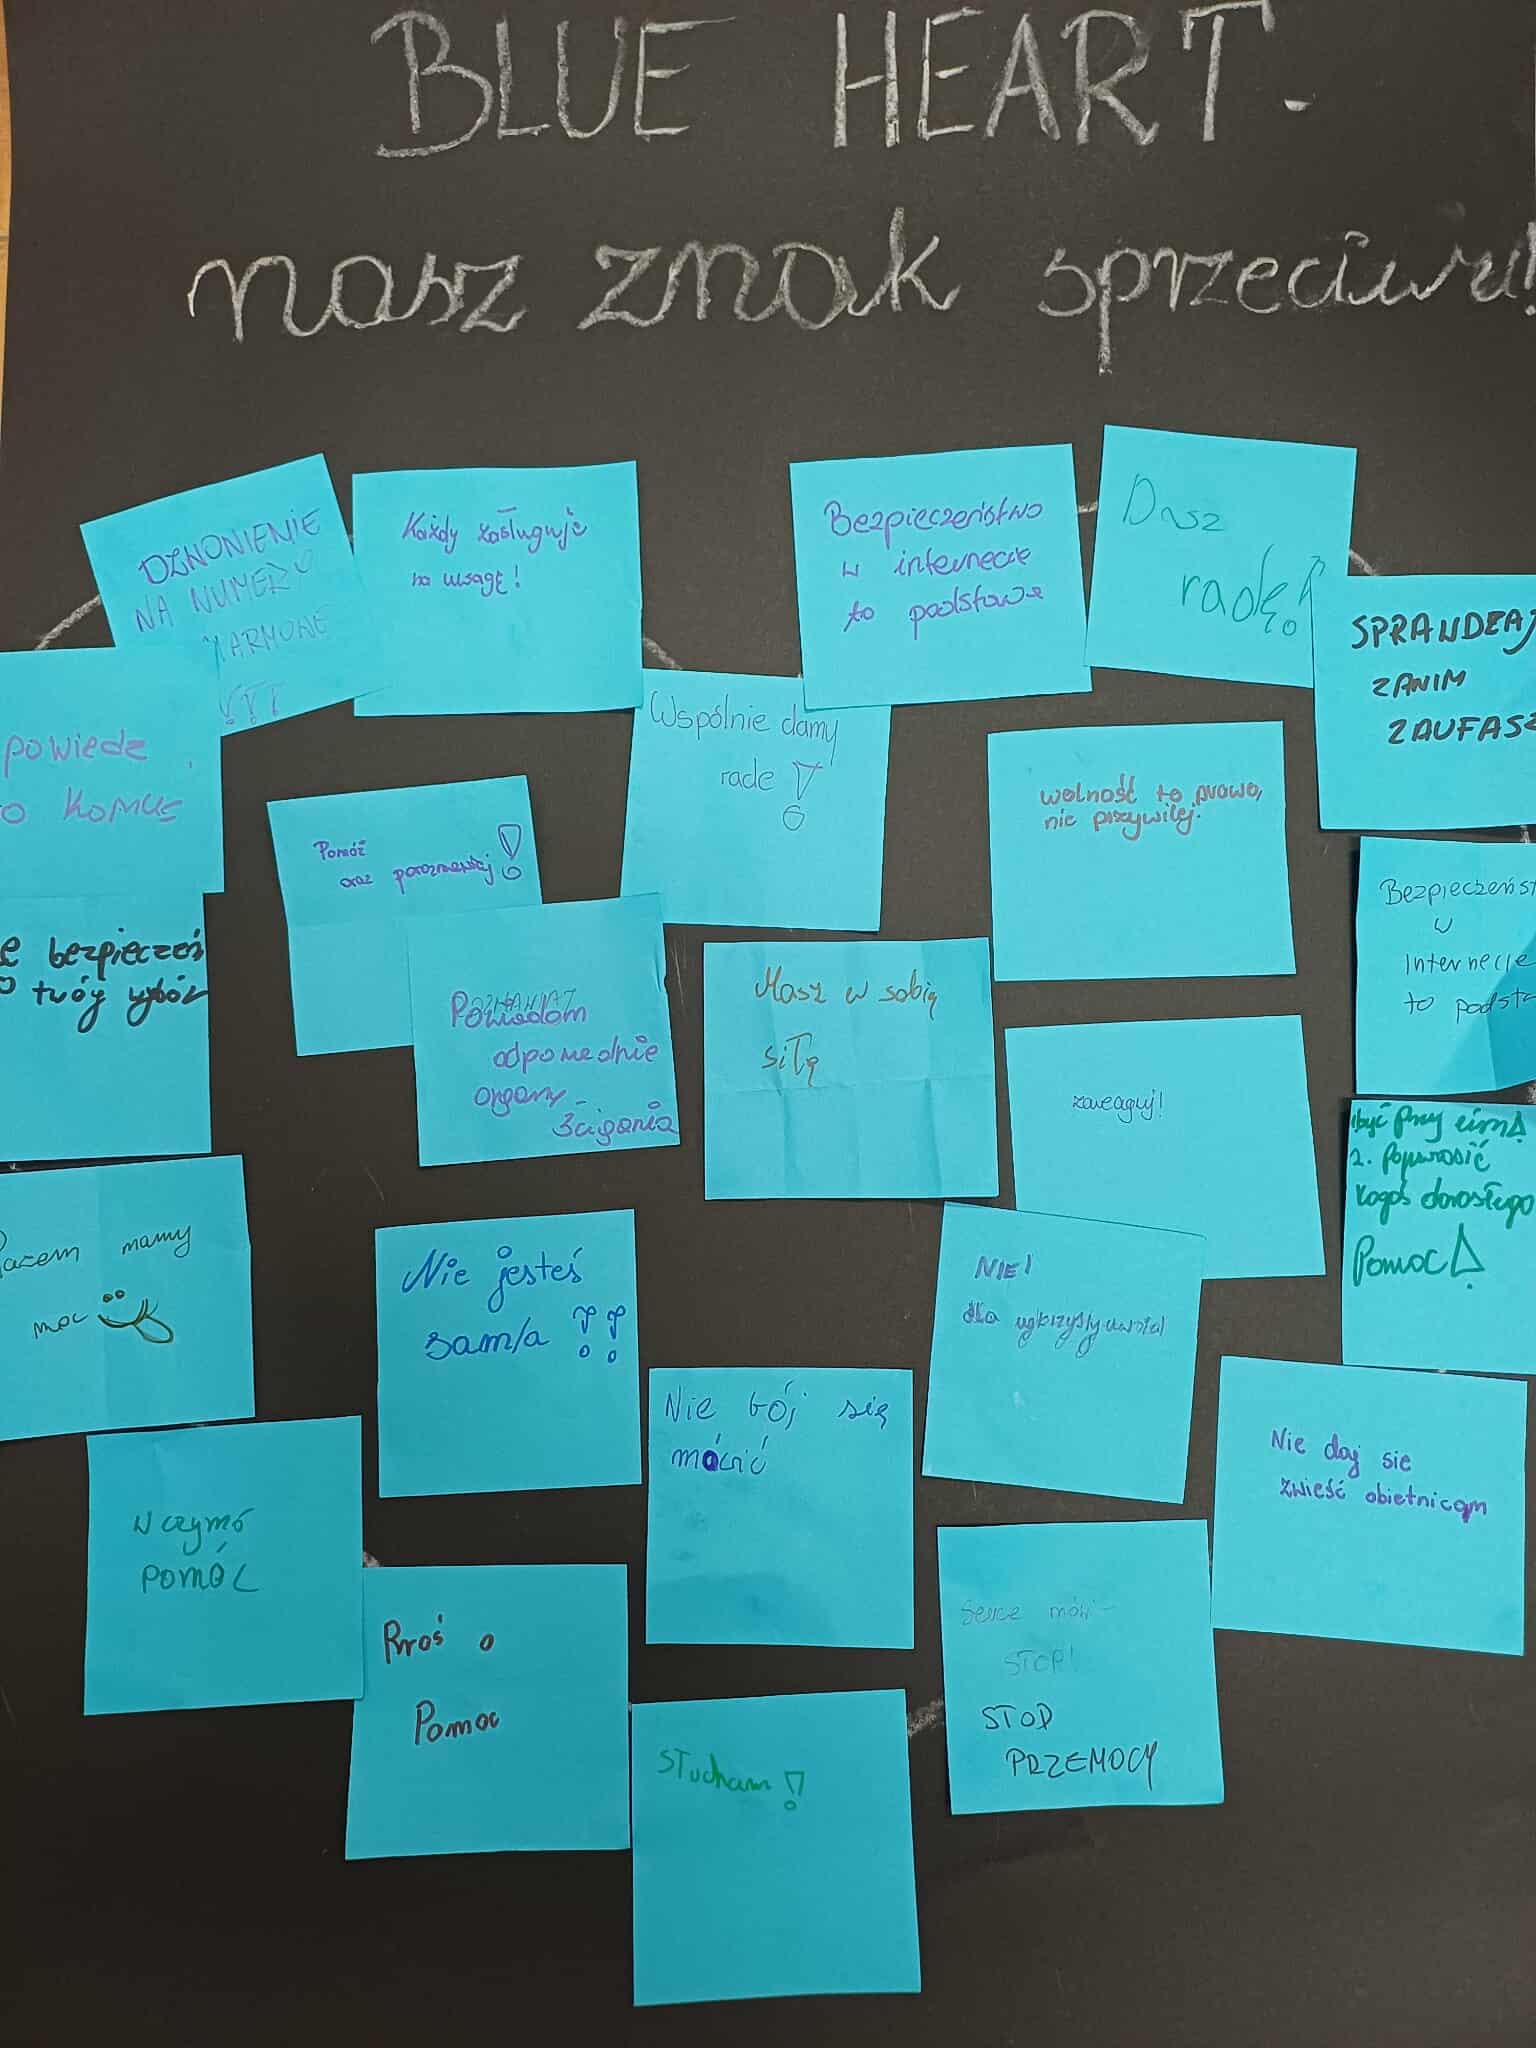 BLUE HEART -
nasz znak sprzeciwu!
DZWONIENIE
NA NUMERY
ALARMOWE
!!!
Każdy zasługuje
na uwagę!
Bezpieczeństwo
w internecie
to podstawa
Dasz
radę!
SPRAWDZAJ
ZANIM
ZAUFASZ
powiedz
to komuś
Pomóż
oraz porozmawiaj!
Wspólnie damy
rade!
wolność to prawo,
nie przywilej.
Bezpieczeńst
w
Internecie
to podsta
bezpiecześ
twój wybór
Powiadom
odpowiednie
organy
ścigania
Masz w sobią
siłę
zareaguj!
1być przy nim!
2. poprosić
kogoś dorosłego
Pomoc!
Razem mamy
moc
Nie jesteś
sam/a !!
NIE!
dla wykorzystywania!
Nie bój się
mówić
Nie daj sie
zwieść obietnicom
W czymś
POMÓC
Proś o
Pomoc
Serce mówi -
STOP!
STOP
PRZEMOCY
Słucham!